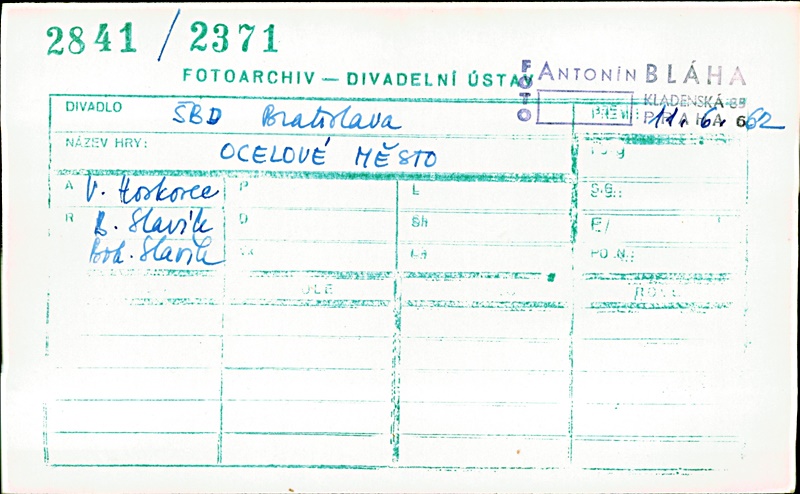 2841 / 2371
FOTOARCHIV — DIVADELNÍ ÚSTAV
FOTO ANTONÍN BLÁHA
KLADENSKÁ
PRAHA 6
DIVADLO ŠBD Bratislava PREM.: 11. 6. 62
NÁZEV HRY: OCELOVÉ MĚSTO
A V. P L S.G.:
R B. Slavík D Sh F/
Boh. Slavík